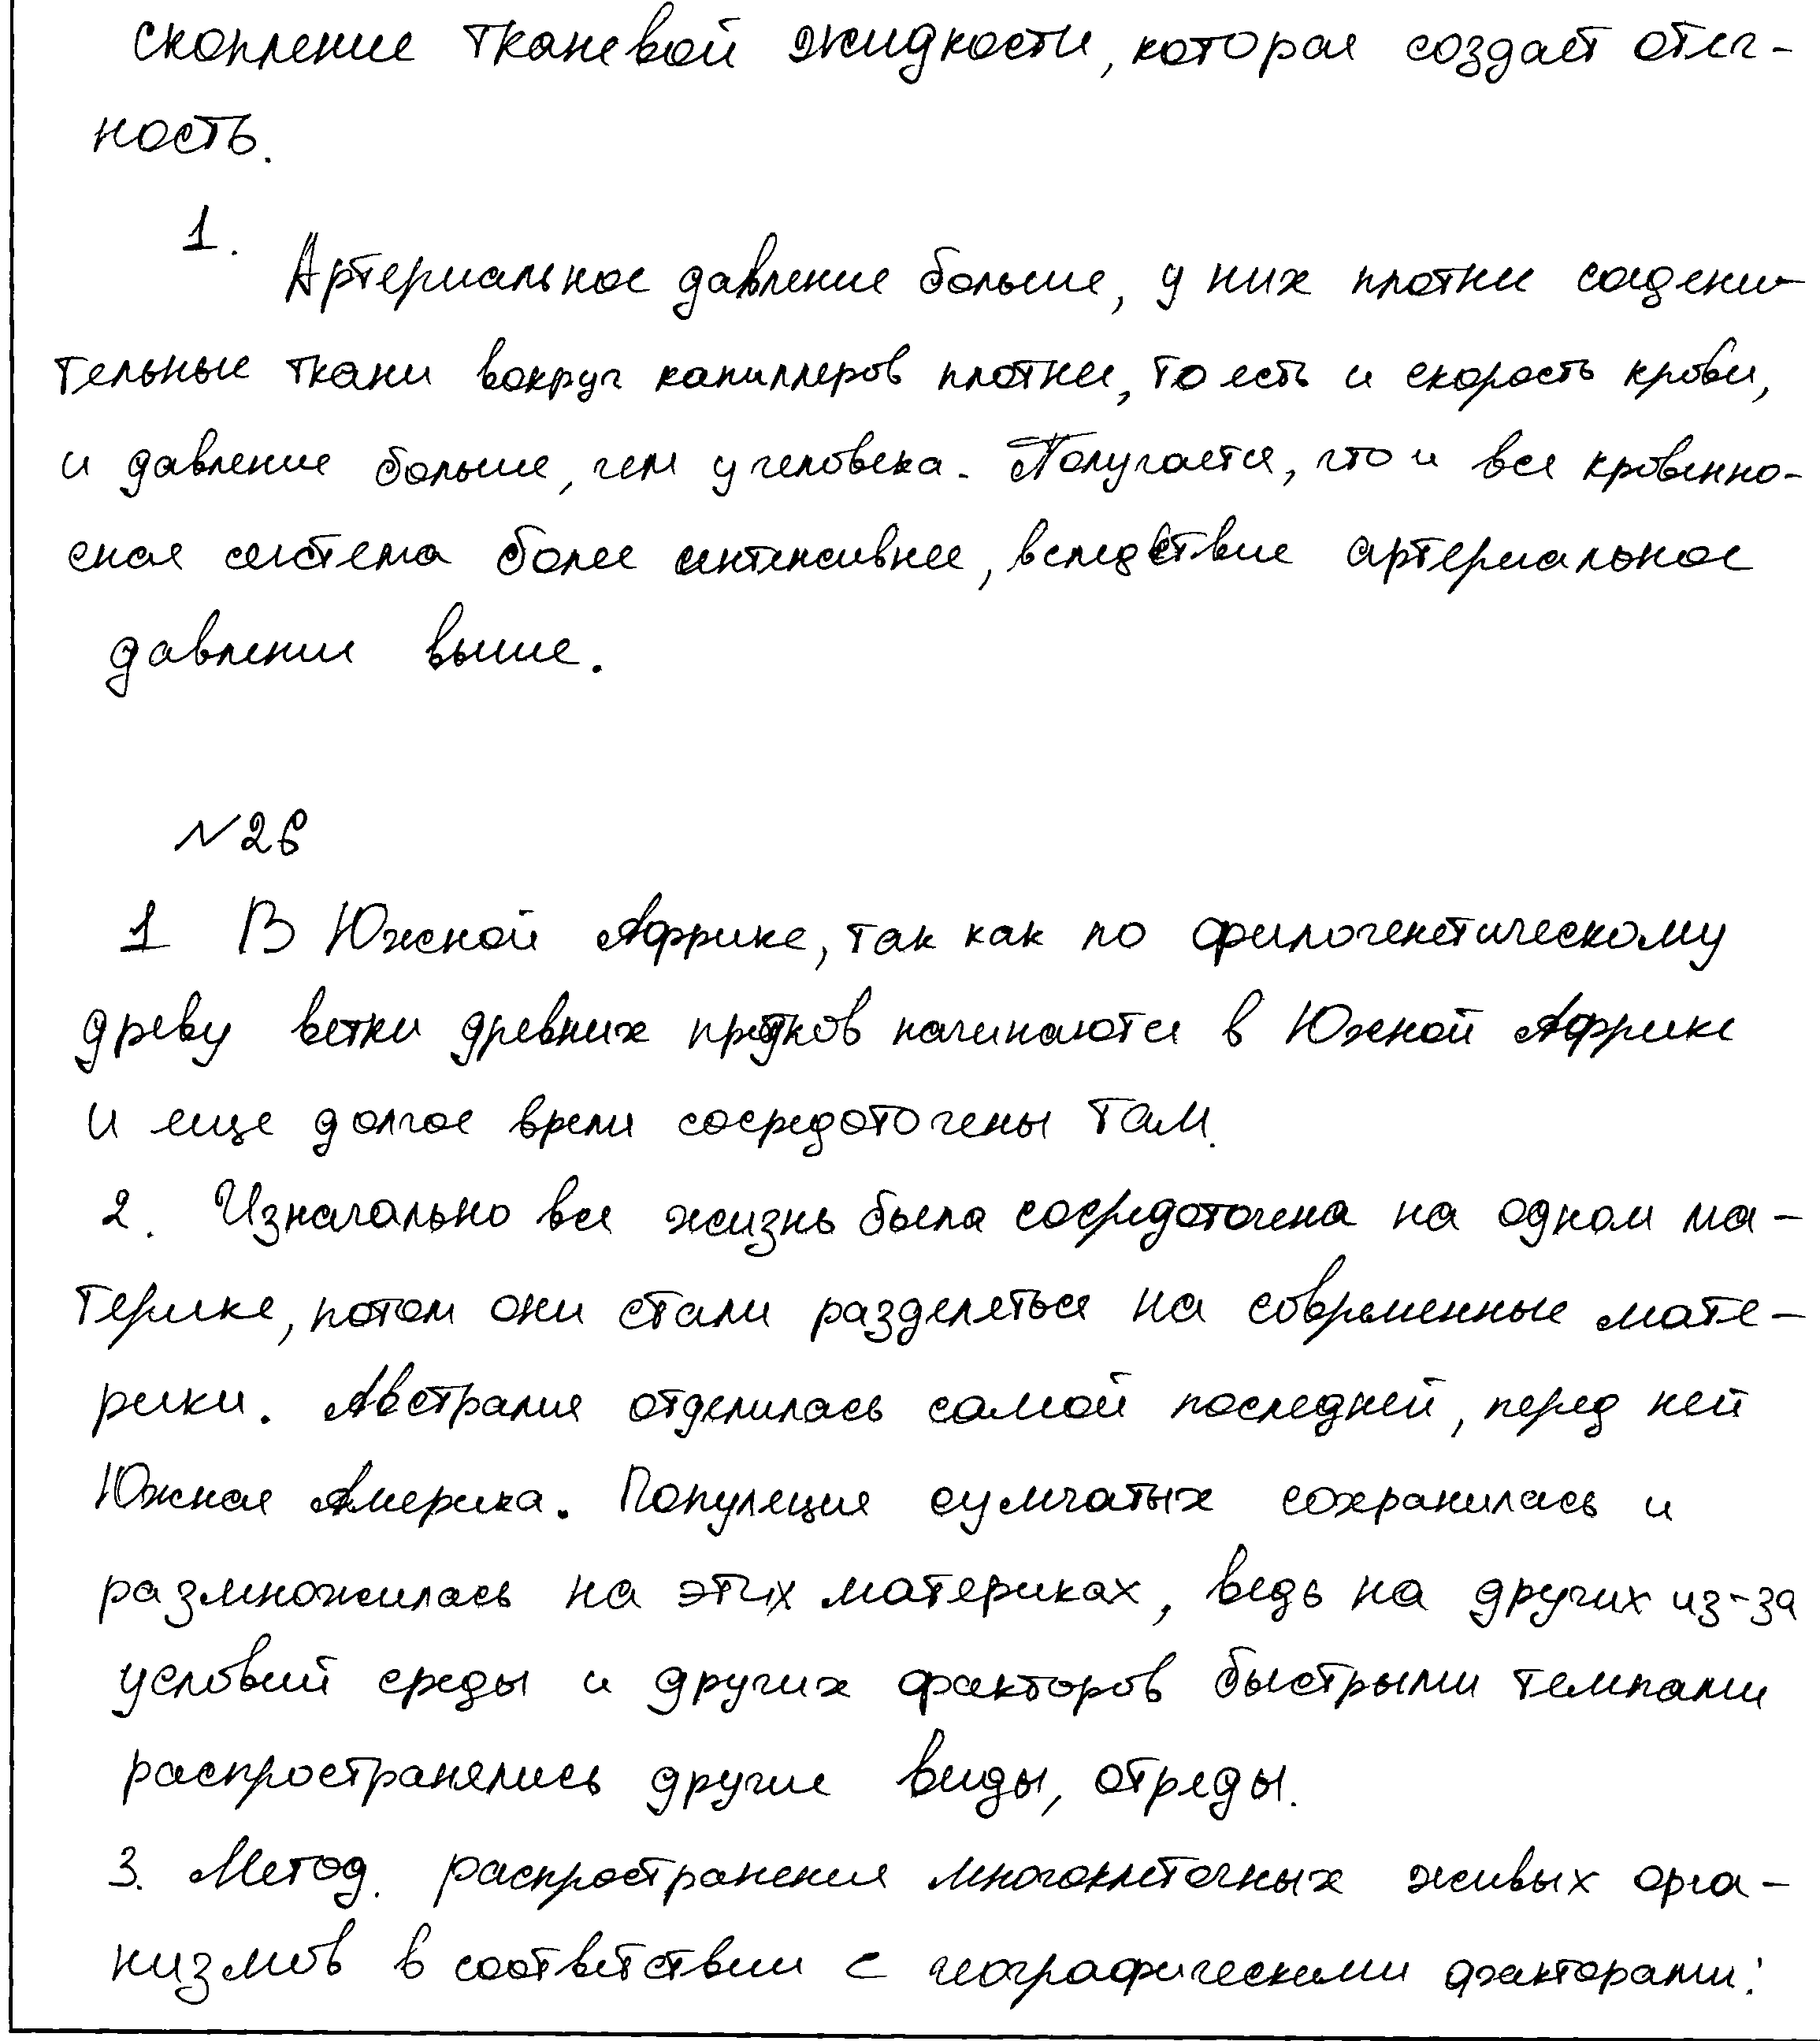 скопление тканевой жидкости, которая создает отеч-
ность.
1.
Артериальное давление больше, у них плотне соедени-
тельные ткани вокруг капиллеров плотнее, то есть и скорость крови,
и давление больше, чем у человека. Получается, что и вся кровенно-
сная система более интенсивнее, вследствие артериальное
давление выше.
№26
1 В Южной Африке, так как по филогенетическому
древу ветки древних предков начинаются в Южной Африке
и еще долгое время сосредоточены там.
2. Изначально вся жизнь была сосредоточена на одном ма-
терике, потом они стали разделяться на современные мате-
рики. Австралия отделилась самой последней, перед ней
Южная Америка. Популяция сумчатых сохранилась и
размножилась на этих материках, ведь на других из-за
условий среды и других факторов быстрыми темпами
распространялись другие виды, отряды.
3. Метод. распространения многоклеточных живых орга-
низмов в соответствии с географическими факторами.